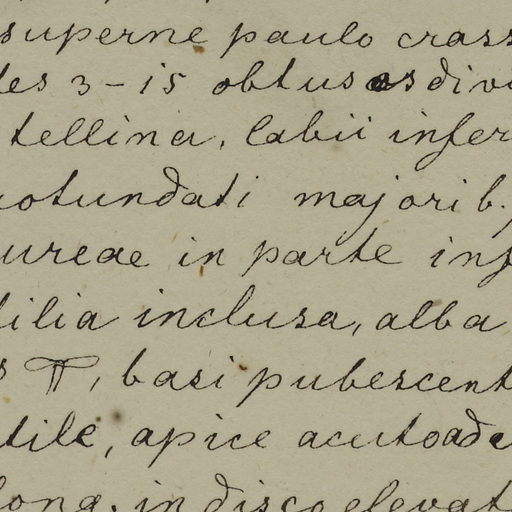 superne paulo crass
des 3-15 obtusas divi
tellina, labii infer
rotundati majorib.
aureae in parte inf
tilia inclusa, alba
s ♊, basi pubescent
tile, apice acuto ade
long. in disco elevat